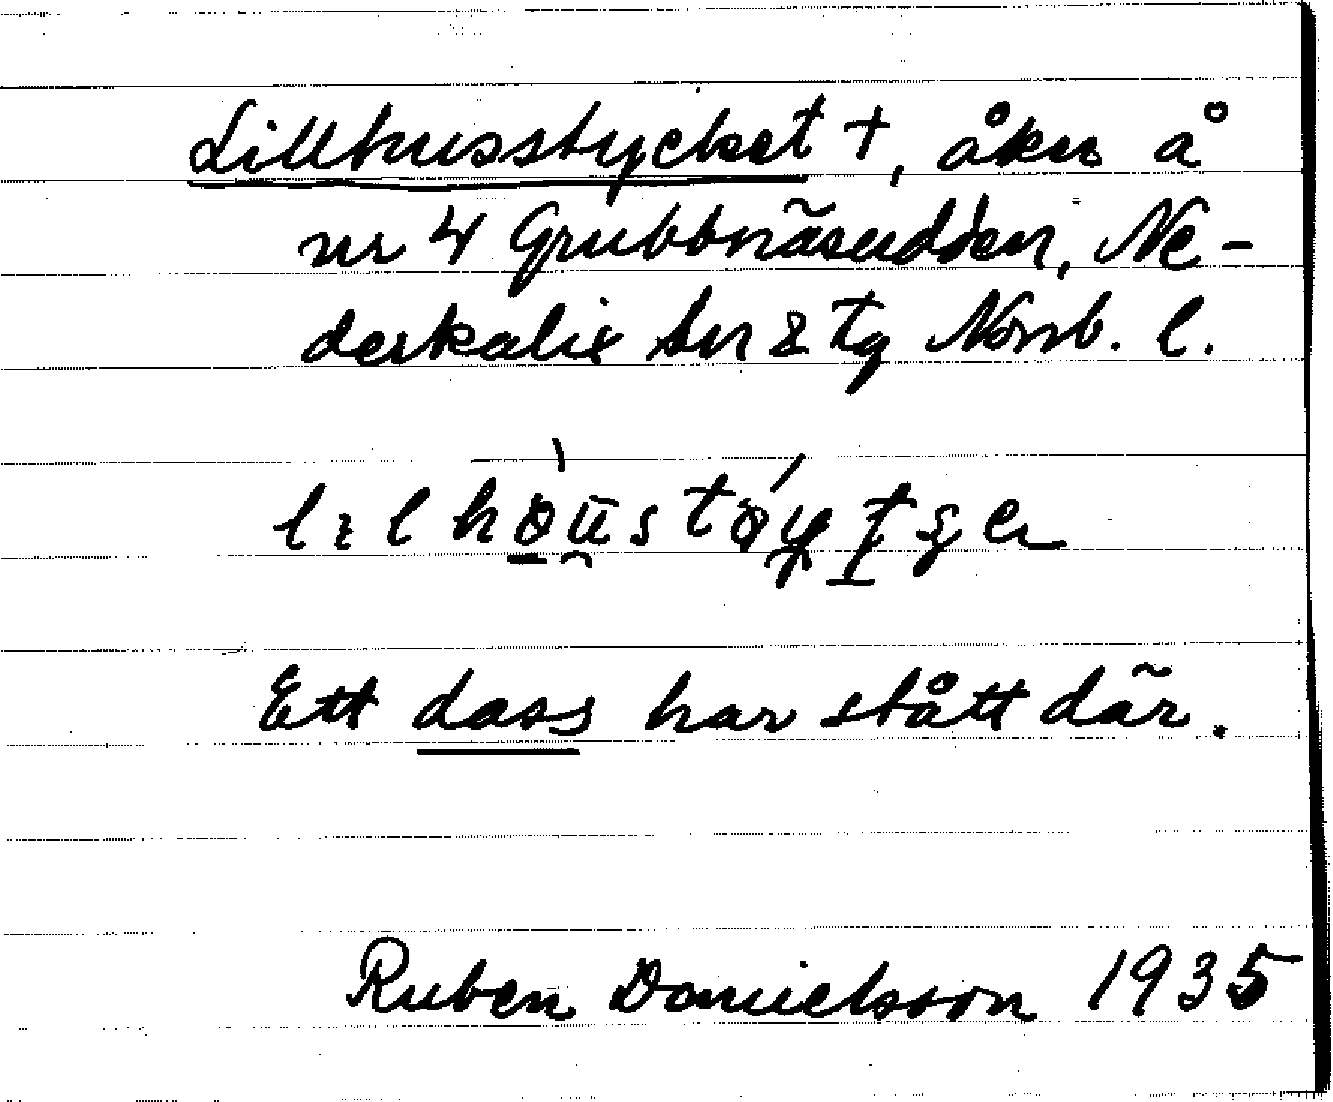 Lillhusstycket +, åker å
nr 4 Grubbnäsudden, Ne-
derkalix sn & tg Norrb. l.
Ett dass har stått där.
Ruben Danielsson 1935